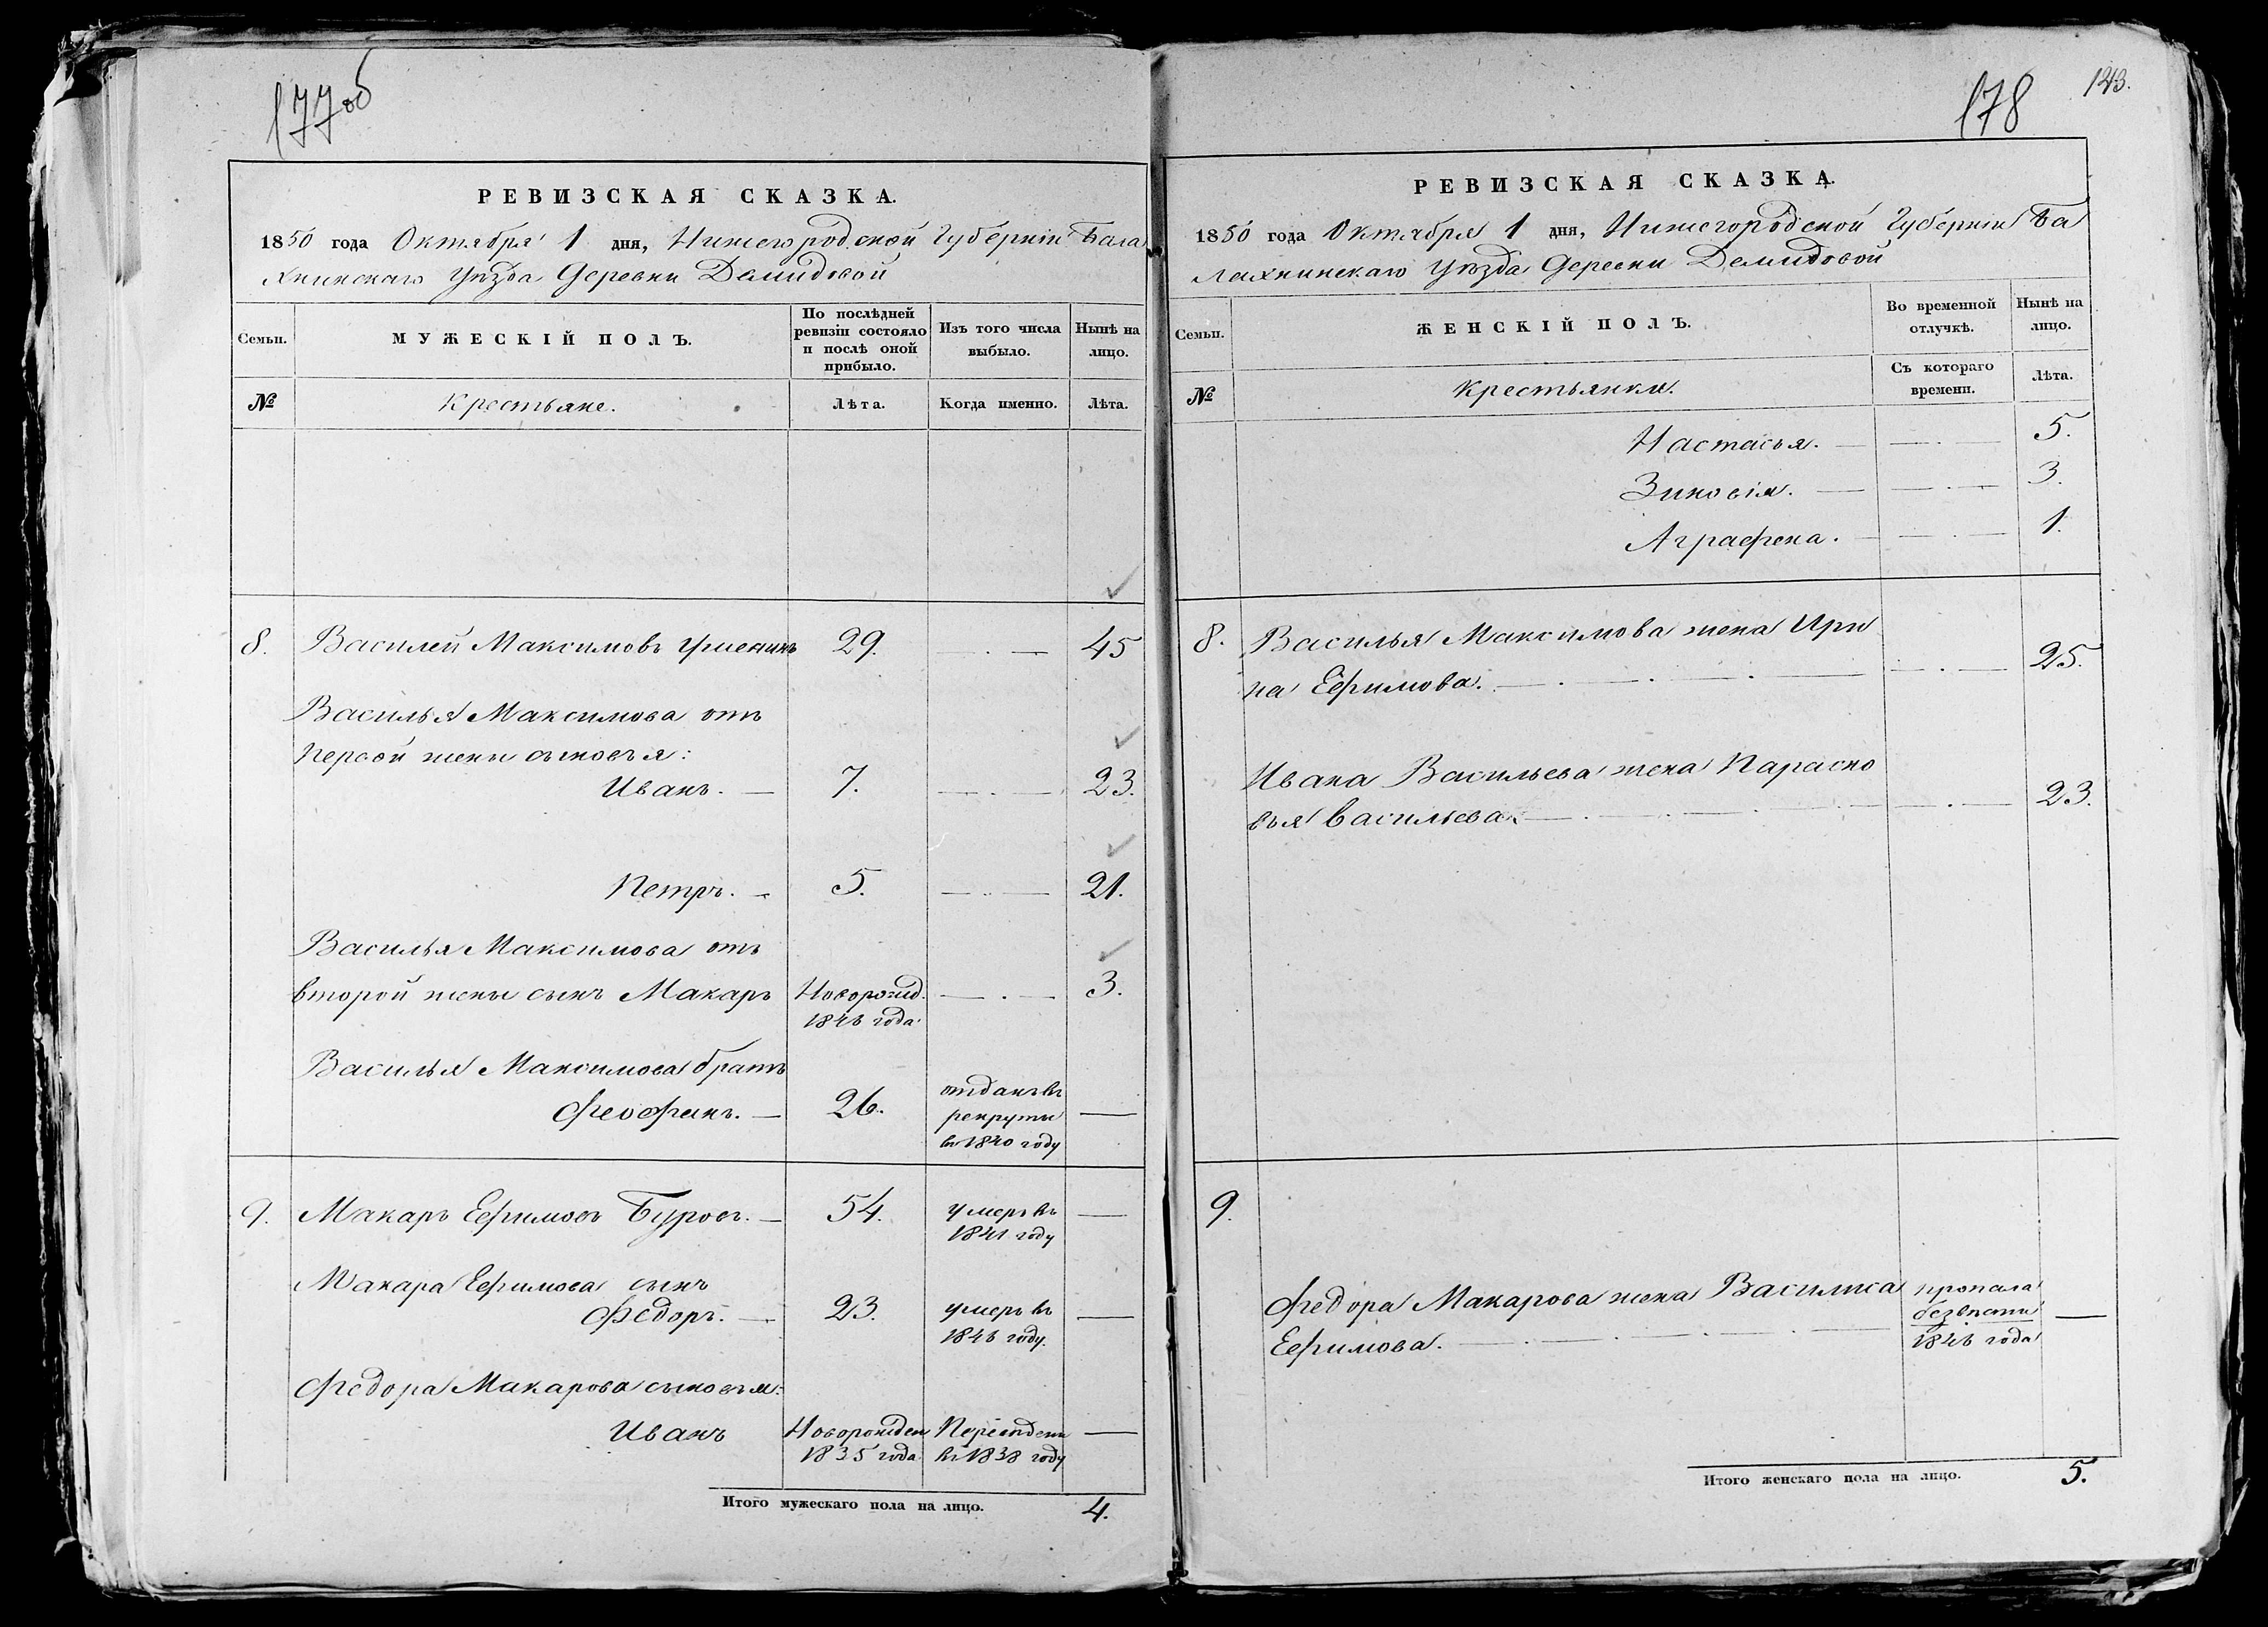 177об
РЕВИЗСКАЯ СКАЗКА.
1850 года Октября 1 дня, Нижегородской Губерніи Бала
хнинскаго Уѣзда Деревни Демидовой
Семьи.
МУЖЕСКІЙ ПОЛЪ.
По послѣдней
ревизіи состояло
и послѣ оной
прибыло.
Изъ того числа
выбыло.
Нынѣ на
лицо.
№
Крестьяне.
Лѣта.
Когда именно.
Лѣта.
8. Василей Максимовъ 29. 45
Василья Максимова отъ
первой жены сыновья:
Иванъ. 7. 23.
Петръ. 5. 21.
Василья Максимова отъ
второй жены сынъ Макаръ Новорожд. 3.
1846 года
Василья Максимова братъ
Феофанъ. 26. отданъ въ
рекруты
въ 1840 году
9. Макаръ Ефимовъ Буровъ. 54. умеръ въ
1841 году
Макара Ефимова сынъ
Федоръ. 23. умеръ въ
1846 году.
Федора Макарова сыновья:
Иванъ Новорожден
1835 года въ 1838 году
Итого мужескаго пола на лицо. 4.
178 143.
РЕВИЗСКАЯ СКАЗКА.
1850 года Октября 1 дня, Нижегородской Губерніи Ба
лахнинскаго Уѣзда Деревни Демидовой
Семьи.
ЖЕНСКІЙ ПОЛЪ.
Во временной
отлучкѣ.
Нынѣ на
лицо.
№
Крестьянки.
Съ котораго
времени.
Лѣта.
Настасья. 5.
Зиновія. 3.
Аграфена. 1.
8. Василья Максимова жена Ири
на Ефимова. 25.
Ивана Васильева жена Параско
вья Васильева 23.
9.
Федора Макарова жена Василиса пропала
безвѣсти
Ефимова. 1846 года
Итого женскаго пола на лицо. 5.